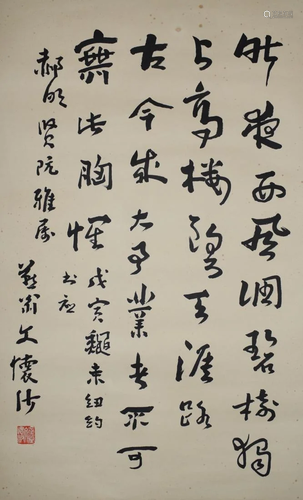 昨夜西风凋碧树独
上高楼望尽天涯路
古今成大事业者不可
无此胸怀 戊寅 纽约
郝明贤阮雅属
燕叟文怀沙